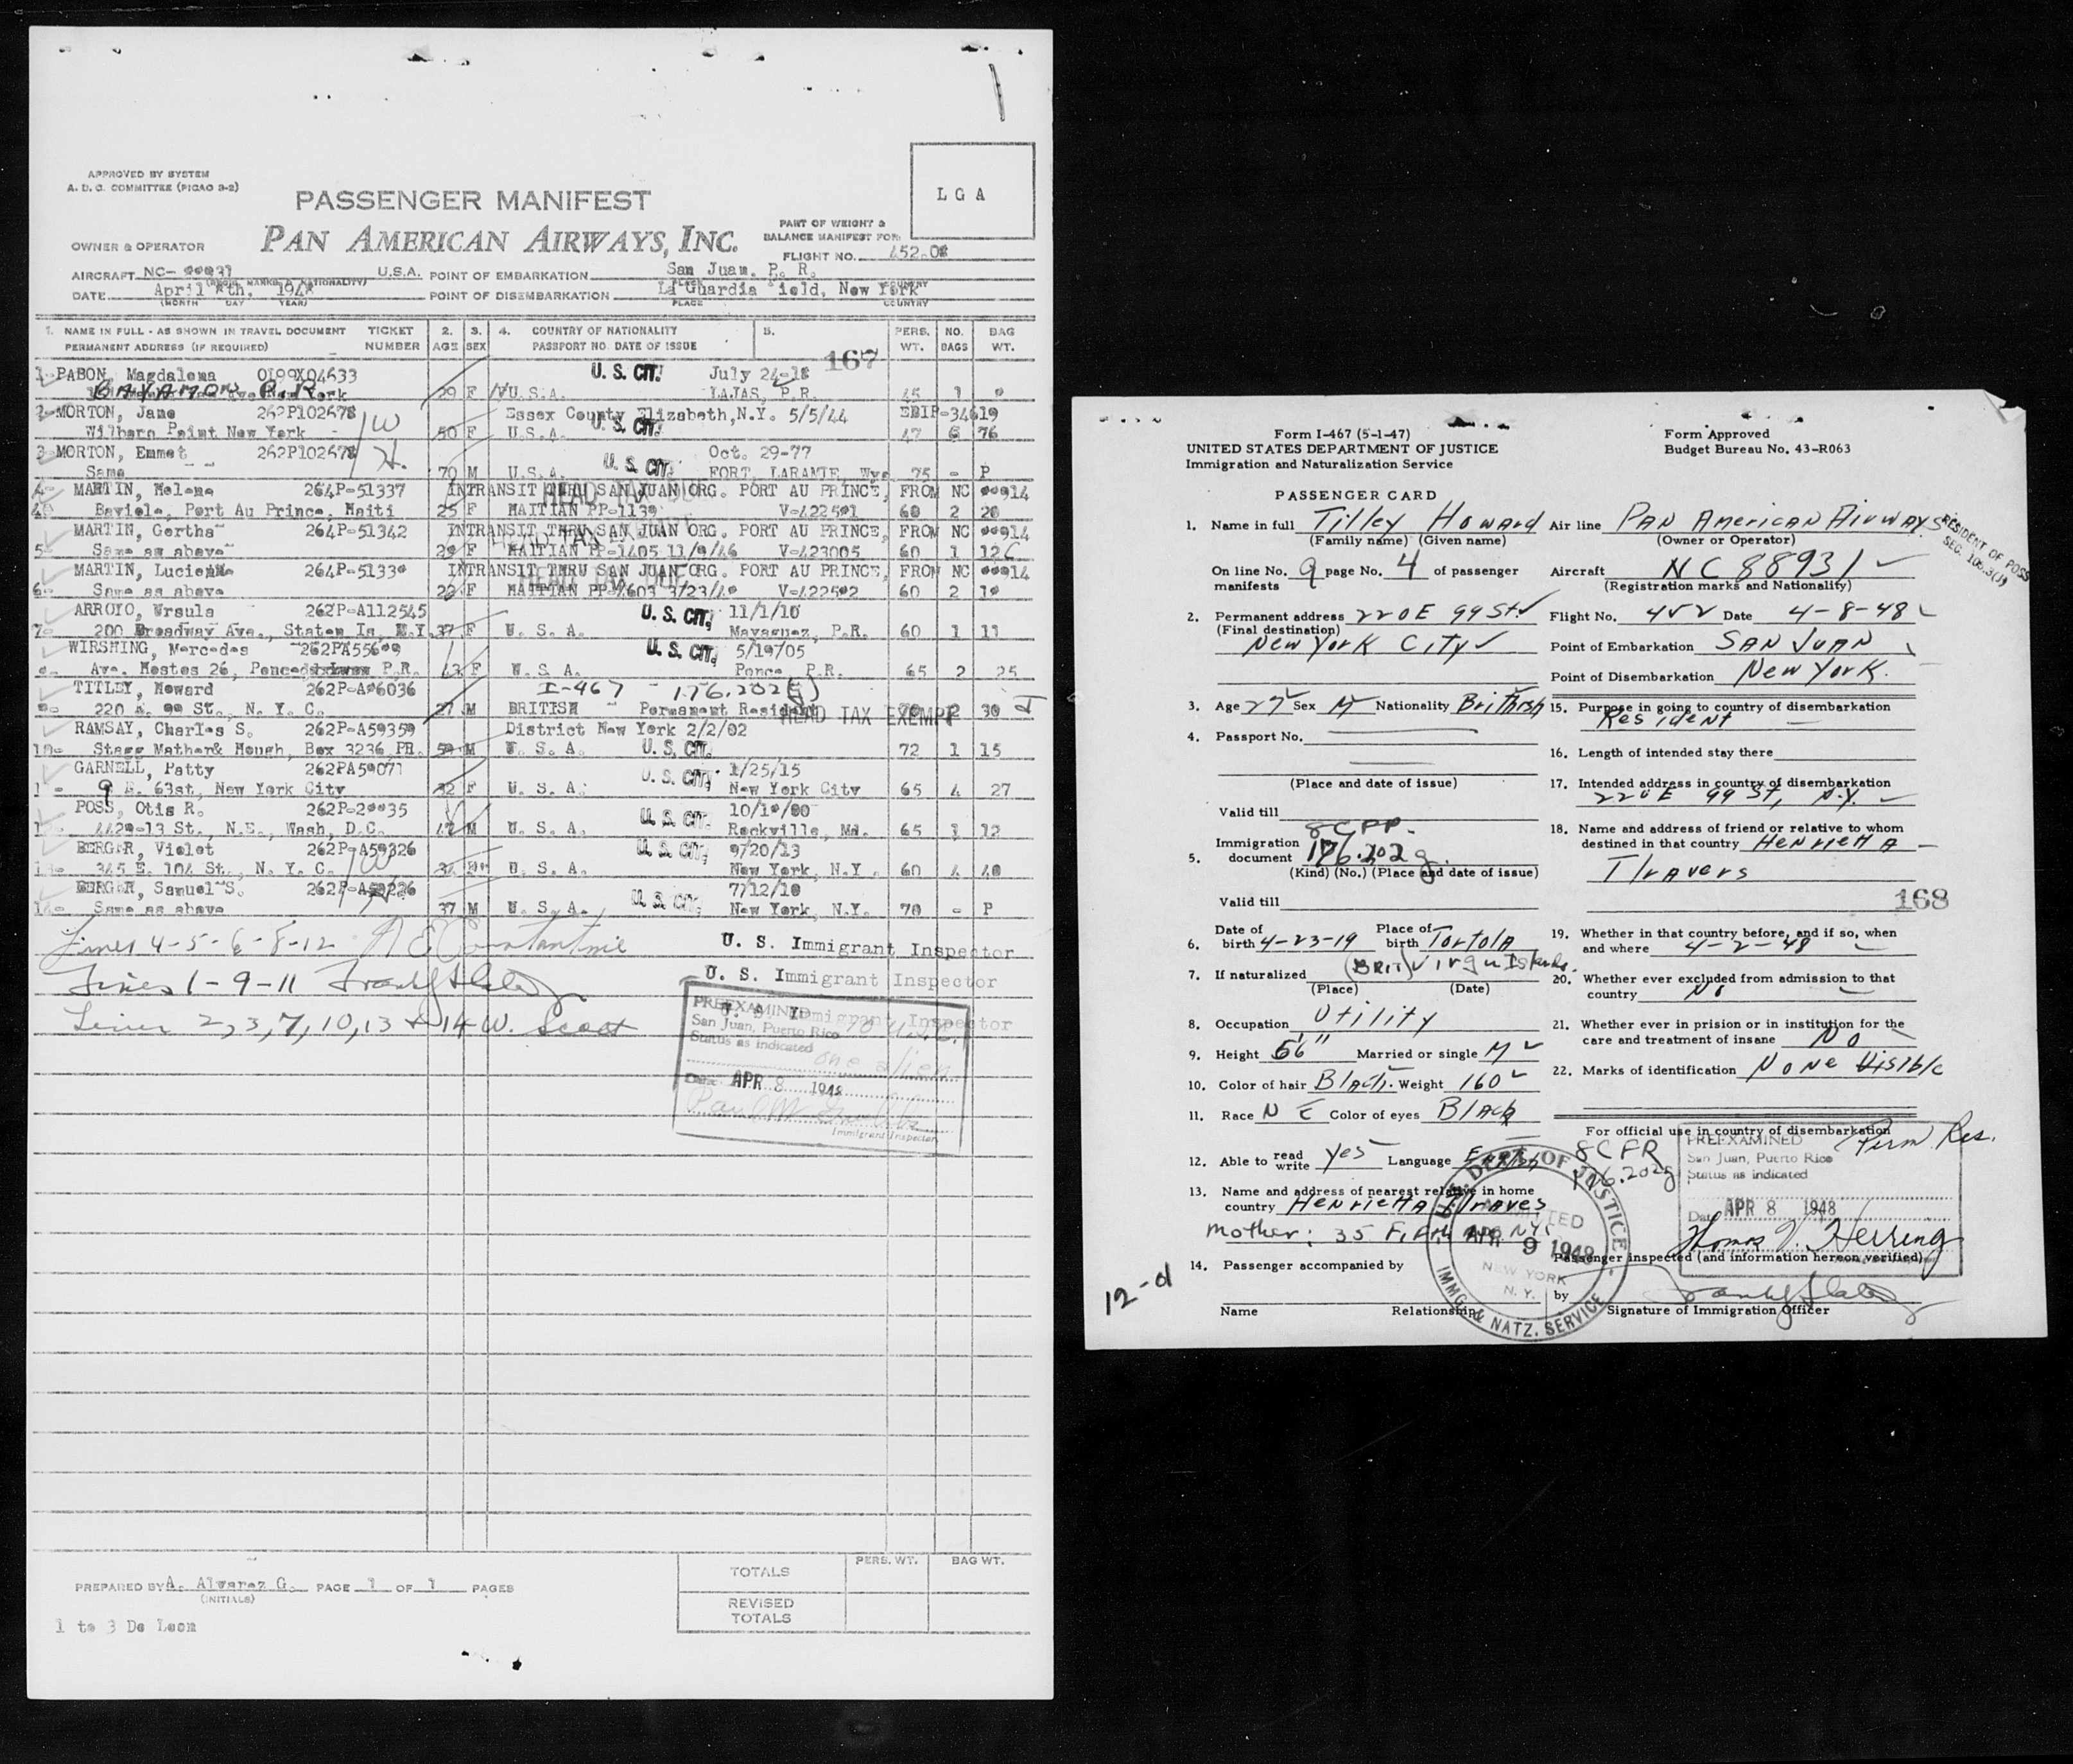 APPROVED BY SYSTEM
A. D. C. COMMITTEE (PICAO 3-2)
LGA
PASSENGER MANIFEST
PART OF WEIGHT &
BALANCE MANIFEST FOR:
OWNER & OPERATOR
PAN AMERICAN AIRWAYS, INC.
FLIGHT NO. 452.08
AIRCRAFT NC- U.S.A. POINT OF EMBARKATION San Juan. P. R.
DATE April 8th, 1948 POINT OF DISEMBARKATION La Guardia Field, New York
(MONTH DAY YEAR) PLACE COUNTRY
1. NAME IN FULL - AS SHOWN IN TRAVEL DOCUMENT TICKET 2. 3. 4. COUNTRY OF NATIONALITY 5. PERS. NO. BAG
PERMANENT ADDRESS (IF REQUIRED) NUMBER AGE SEX PASSPORT NO. DATE OF ISSUE WT. BAGS WT.
167
1- PABON, Magdalena 0199X04633 U. S. CIT. July 24-18
BAYAMON P.R. 29 F U.S.A. LAJAS, P.R. 45 1
2- MORTON, Jane 262P102678 W Essex County Elizabeth, N.Y. 5/5/44 EBIP-34619
Wilharn Point New York 50 F U.S.A. U. S. CIT. 47 6 76
3- MORTON, Emmet 262P102678 H. Oct. 29-77
Same 70 M U.S.A. U. S. CIT. FORT, LARAMIE, Wyo 75 - P
4- MARTIN, Melena 264P-51337 INTRANSIT THRU SAN JUAN ORG. PORT AU PRINCE, FROM NC
Baviole, Port Au Prince, Haiti 25 F HAITIAN PP-1139 60 2 20
MARTIN, Gertha 264P-51342 INTRANSIT THRU SAN JUAN ORG. PORT AU PRINCE, FROM NC
5- Same as above 29 F HAITIAN PP-1405 11/9/46 V-423005 60 1 12
MARTIN, Lucienne INTRANSIT THRU SAN JUAN ORG. PORT AU PRINCE, FROM NC
6- Same as above 22 F HAITIAN 60 2
HEAD TAX DUE
ARROYO, Ursula 262P-A112545 U. S. CIT. 11/1/10
7- 200 Broadway Ave., Staten Is, N.Y. 37 F U. S. A. Mayaguez, P.R. 60 1 11
WIRSHING, Mercedes U. S. CIT. 5/19/05
Ave. Hostos 26, Ponce P.R. 43 F U. S. A. Ponce, P.R. 65 2 25
TITLEY, Howard 262P-A86036 I-467 - 176.202(g)
220 E. 99 St., N. Y. C. 27 M BRITISH Permanent Resident HEAD TAX EXEMPT 70 2 30
RAMSAY, Charles S. 262P-A59359 District New York 2/2/02
10- Stagg Mather& Hough, Box 3236 PR. M U. S. A. U. S. CIT. 72 1 15
GARNELL, Patty 262PA59071 U. S. CIT. 1/25/15
9 E. 63st, New York City 32 F U. S. A. New York City 65 4 27
POSS, Otis R. U. S. CIT. 10/10/00
4429-13 St., N.E., Wash, D.C. 47 M U. S. A. Rockville, Md. 65 1 12
BERGER, Violet 262P-A59326 U. S. CIT. 9/20/13
345 E. 104 St., N. Y. C. 34 U. S. A. New York, N.Y. 60 4 40
BERGER, Samuel S. U. S. CIT. 7/12/10
14- Same as above 37 M U. S. A. New York, N.Y. 70 - P
Lines 4-5-6-8-12 A E Constantine U. S. Immigrant Inspector
Lines 1-9-11 U. S. Immigrant Inspector
Lines 2,3,7,10,13 & 14 W. Scott Immigrant Inspector
PREEXAMINED
San Juan, Puerto Rico
Status as indicated
one alien
Date APR 8 1948
Immigrant Inspector
TOTALS PERS. WT. BAG WT.
PREPARED BY A. Alvarez G. PAGE 1 OF 1 PAGES
(INITIALS)
REVISED
TOTALS
1 to 3 De Leon
Form I-467 (5-1-47)
UNITED STATES DEPARTMENT OF JUSTICE
Immigration and Naturalization Service
Form Approved
Budget Bureau No. 43-R063
PASSENGER CARD
1. Name in full Titley Howard
(Family name) (Given name)
On line No. 9 page No. 4 of passenger
manifests
2. Permanent address 220 E 99 St.
(Final destination)
New York City
3. Age 27 Sex M Nationality British
4. Passport No.
(Place and date of issue)
Valid till
8 CFR
5. Immigration document 176.202g.
(Kind) (No.) (Place and date of issue)
Valid till
6. Date of birth 4-23-19 Place of birth Tortola
7. If naturalized (BRIT) Virgin Islands.
(Place) (Date)
8. Occupation Utility
9. Height 5'6" Married or single M
10. Color of hair Black. Weight 160
11. Race NE Color of eyes Black
12. Able to read write yes Language English
13. Name and address of nearest relative in home
country Henrietta Traves
Mother: 35 Fifth Ave NY.
14. Passenger accompanied by
Name Relationship
12-d
Air line PAN American Airways.
(Owner or Operator)
RESIDENT OF POSS
SEC. 108.3(J)
Aircraft NC 88931
(Registration marks and Nationality)
Flight No. 452 Date 4-8-48
Point of Embarkation SAN JUAN
Point of Disembarkation New York.
15. Purpose in going to country of disembarkation
Resident
16. Length of intended stay there
17. Intended address in country of disembarkation
220 E 99 St, N.Y.
18. Name and address of friend or relative to whom
destined in that country Henrietta
Travers
168
19. Whether in that country before, and if so, when
and where 4-2-48
20. Whether ever excluded from admission to that
country No
21. Whether ever in prision or in institution for the
care and treatment of insane No
22. Marks of identification None Visible
For official use in country of disembarkation
8 CFR
176.202g
Perm Res.
PREEXAMINED
San Juan, Puerto Rico
Status as indicated
Date APR 8 1948
Thomas V. Herring
Passenger inspected (and information hereon verified)
by
Signature of Immigration Officer
U.S. DEPT. OF JUSTICE
ADMITTED
APR 9 1948
NEW YORK
N. Y.
IMMG. & NATZ. SERVICE